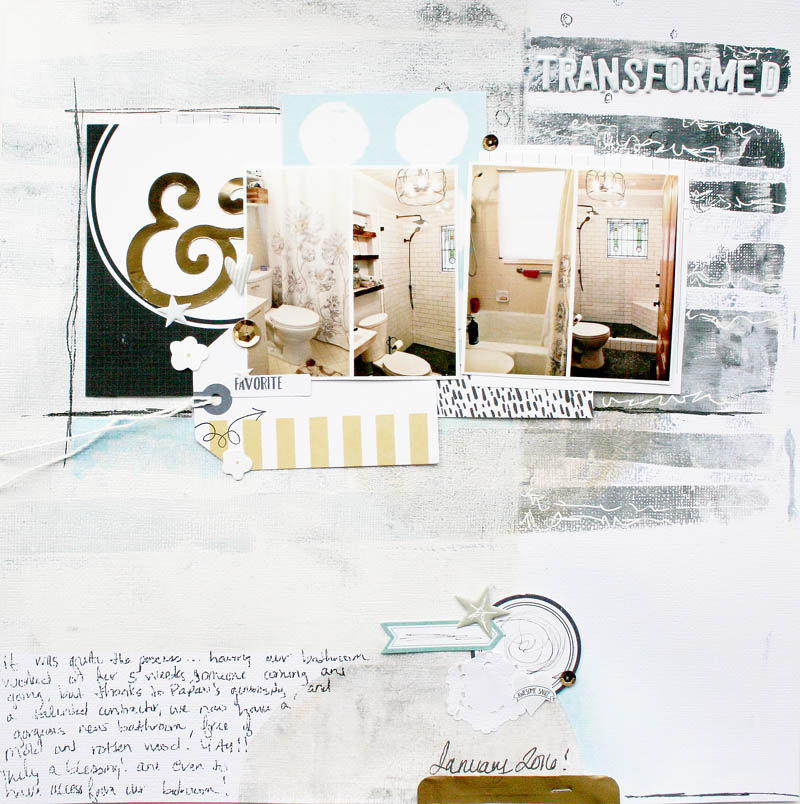 TRANSFORMED
&
FAVORITE
it was quite the process... having our bathroom
worked on for 5 weeks, someone coming and
going, but thanks to Papau's generosity, and
a talented contractor, we now have a
gorgeous new bathroom, free of
mold and rotten wood. YAY!!
truly a blessing! and even
have access from our bedroom!
AWESOME SAUCE
January 2016!